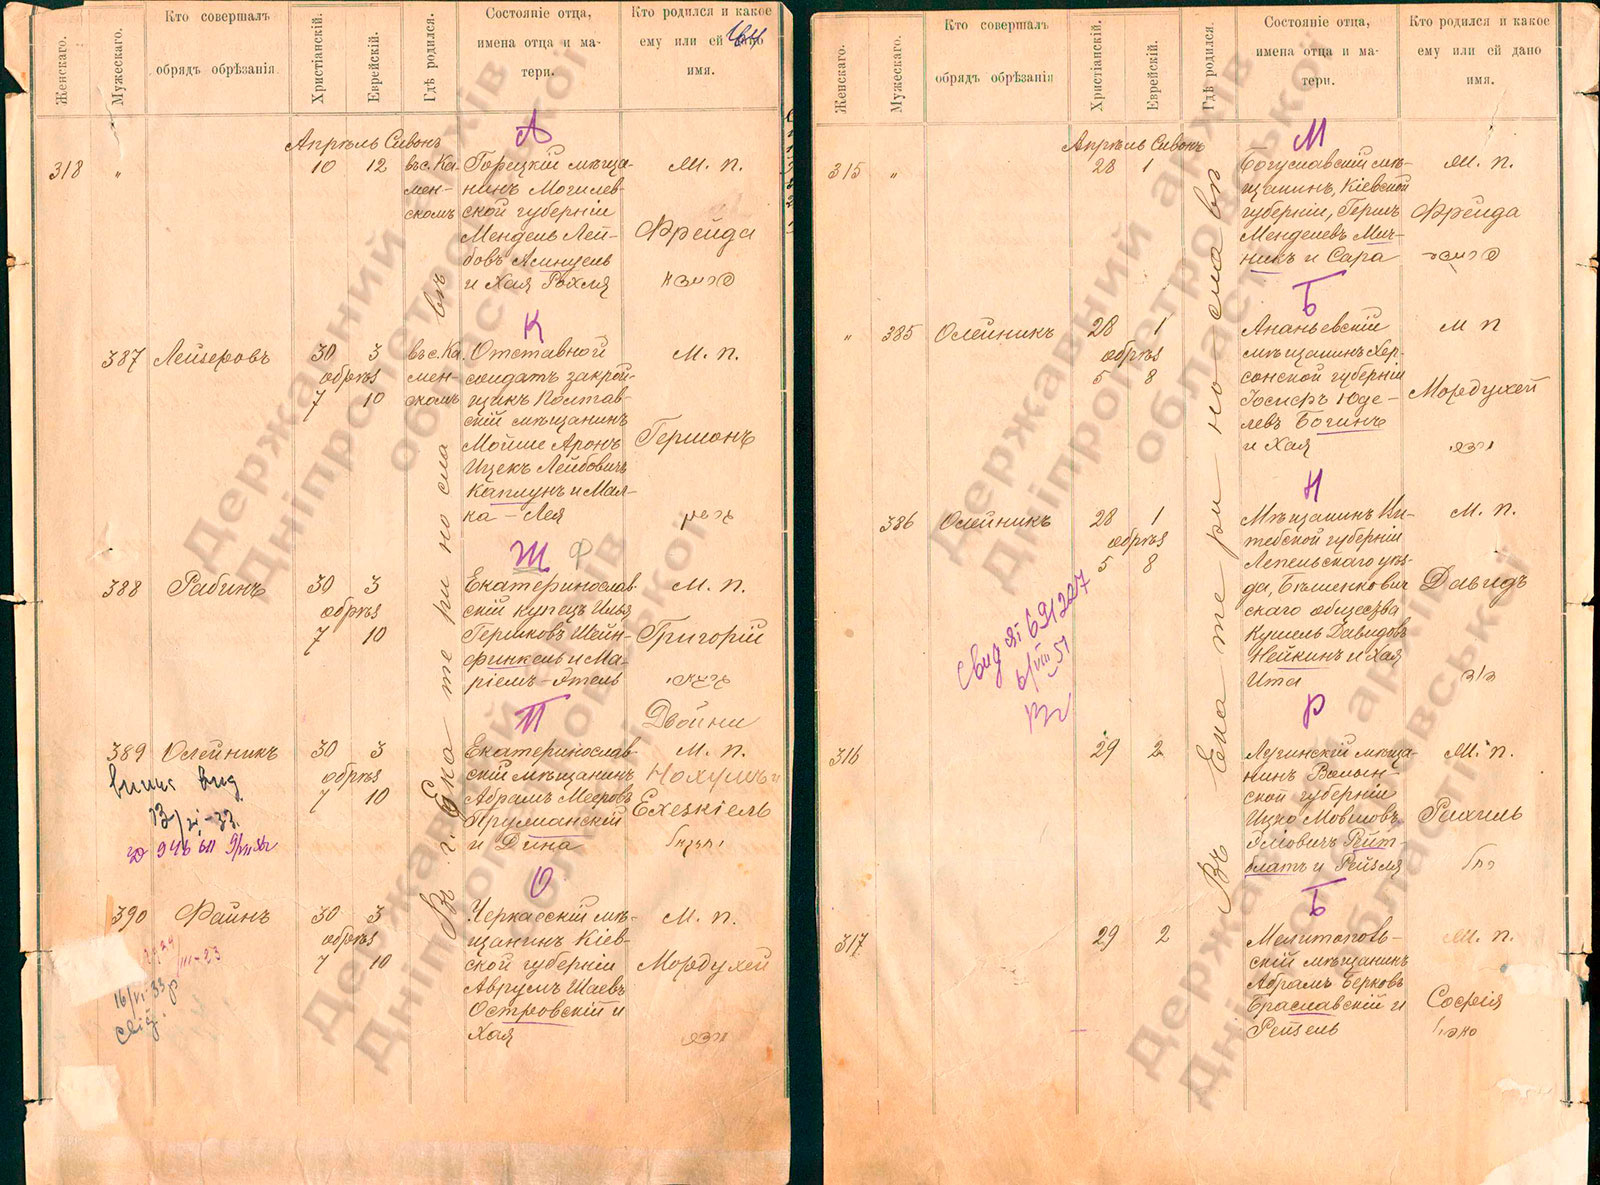 Женскаго.
Мужескаго.
Кто совершалъ
обрядъ обрѣзанія.
Христіанскій.
Еврейскій.
Гдѣ родился.
Состояніе отца,
имена отца и ма-
тери.
Кто родился и какое
ему или ей дано
имя.
А
Апрѣль Сивонъ
318 " 10 12 въ с. Ка-
мен-
скомъ
Горецкій мѣща-
нинъ Могилев-
ской губерніи
Мендель Лей-
бовъ
и Хая Рохля
М. п.
Фрейда
К
387 Лейзеровъ 30 3
обрѣз
7 10
въ с. Ка
мен-
скомъ
Отставной
солдатъ закрой-
щикъ Полтав-
скій мѣщанинъ
Мойше Аронъ
Ицекъ Лейбовичъ
Каплунъ и Мал-
ка - Лея
М. п.
Гершонъ
גרשון
Ж Ф
388 Рабинъ 30 3
обрѣз
7 10
Екатеринослав-
скій купецъ Илья
Гершковъ Шейн-
финкель и Ма-
ріемъ-Этель
М. п.
Григорій
П
Двойни
389 Олейникъ 30 3
обрѣз
7 10
Екатеринослав-
скій мѣщанинъ
Абрамъ Мееровъ
Пружанскій
и Дина
М. п.
Нохумъ и
Ехезкіель
О
390 Файнъ 30 3
обрѣз
7 10
Черкасскій мѣ-
щанинъ Кіев-
ской губерніи
Аврумъ Шаевъ
Островскій и
Хая
М. п.
Мордухей
מרדכי
16/VI-33 р
Въ г. Екатеринославѣ
Женскаго.
Мужескаго.
Кто совершалъ
обрядъ обрѣзанія
Христіанскій.
Еврейскій.
Гдѣ родился
Состояніе отца,
имена отца и ма-
тери.
Кто родился и какое
ему или ей дано
имя.
М
Апрѣль Сивонъ
315 " 28 1
Богуславскій мѣ-
щанинъ, Кіевской
губерніи, Герш
Менделевъ Мич-
никъ и Сара
М. п.
Фрейда
Б
" 385 Олейникъ 28 1
обрѣз
5 8
Ананьевскій
мѣщанинъ Хер-
сонской губерніи
Іосифъ Юде-
левъ Богинъ
и Хая
М п
Мордухей
מרדכי
Н
386 Олейникъ 28 1
обрѣз
5 8
Мѣщанинъ Ви-
тебской губерніи
Лепельскаго уѣз-
да, Бѣшенкович
скаго общества
Кушель Давидовъ
Нейкинъ и Хая
Ита
М. п.
Давидъ
דוד
6/VIII 51
Р
316 29 2
Лугинскій мѣща-
нинъ Волын-
ской губерніи
Ицко Мовшовъ
Рейт-
блатъ и Рейзля
М. п.
Рахиль
רחל
Б
317 29 2
Мелитополь-
скій мѣщанинъ
Абрамъ Берковъ
Браславскій и
Рейзель
М. п.
Софія
Въ Екатеринославѣ
Державний архів
Дніпропетровської
області